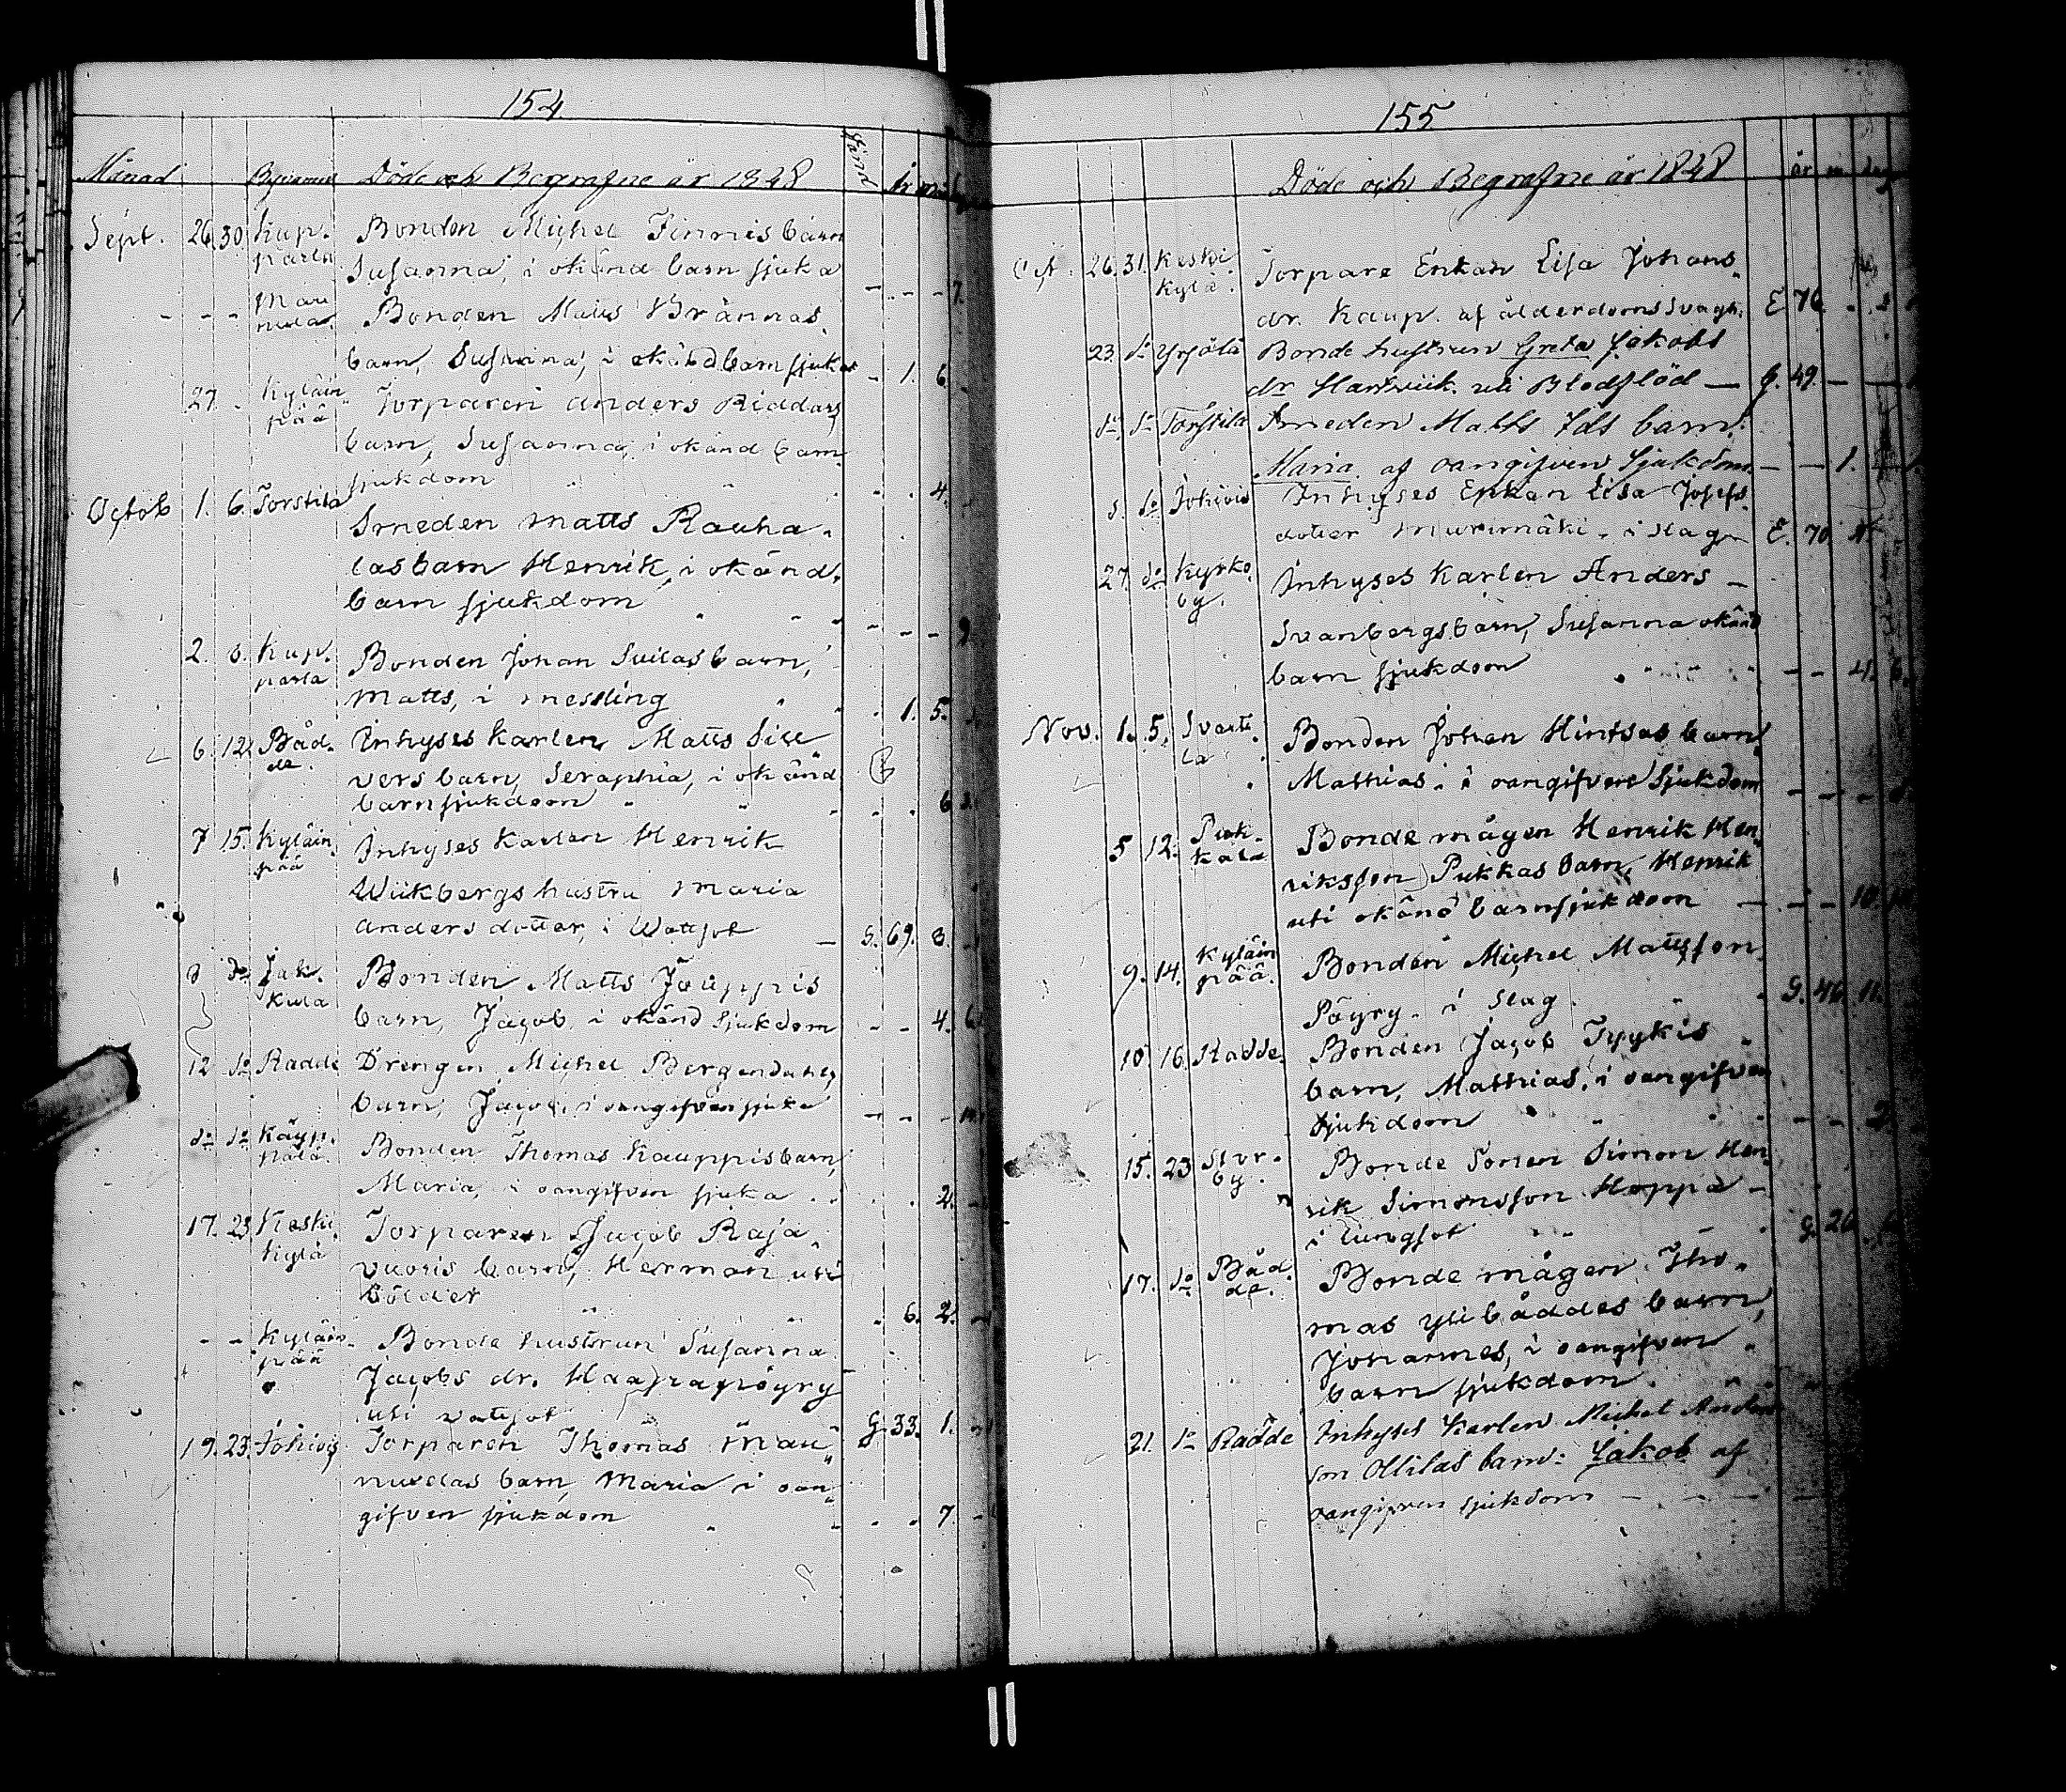 154
Månad Bynamn Döde och Begrafne är 1848 år
Sept. 26. 30. Kup. Bonden Michel Finnis barn
parla Susanna, i okänd barn sjuka - - - 7.
- - - Mau
nula. Bonden Matts Brännas
barn, Susanna, i okänd barn sjuka - 1. 6. -
27. - Kyläin Torparen Anders Riddars
pää barn, Susanna, i okänd barn
sjukdom 4.
Octob 1. 6. Torstila Smeden Matts Rauha
las barn Henrik, i okänd
barn sjukdom - - - 9.
2. 8. Kup. Bonden Johan Suilas barn,
parla Matts, i messling 1. 5.
6. 12. Båd. Inhyses Karlen Matts
de. vers barn, Seraphia, i okänd
barnsjukdom 6
7 15. Kyläin Inhyses Karlen Henrik
pää Wiikbergs hustru Maria
Anders dotter, i Wattsot - 69. 8.
8 do Jak. Bonden Matts Jouppis
kula barn, Jacob, i okänd sjukdom - - 4. 6.
12 do Radde Drengen Michel Bergendahls
barn, Jacob, i oangifven sjuka - - -
do do Käyp. Bonden Thomas Kauppis barn,
pälä. Maria, i oangifven sjuka . . 2.
17. 23. Keski Torparen Jacob Raja
kylä vuoris barn, Herman uti
bölder . 6. 2.
- - Kyläin Bonde hustrun Susanna
pää Jacobs dr. Haapapöyry
uti vatsot G. 33. 1.
19. 23. Jokivis Torparen Thomas Mau
nuxelas barn, Maria i oan
gifven sjukdom . . 7. -
155
Döde och Begrafne är 1848 år m dag
Oct. 26. 31. Keski Torpare Enkan Lisa Johans
kylä. dr. Kaup. af ålderdoms svagh. E. 76. . .
23. do Yrjälä Bonde hustrun Greta Jakobs
dr Hartviik. uti Blodflöd — G. 49. — —
do do Torstila Smeden Matts Ids barn:
Maria af oangifven Sjukdom - - 1.
do Jokivis Inhyses Enkan Lisa Josefs
dotter Murimäki. i slag E. 70.
27. do Kyrko Inhyses Karlen Anders -
by. Svanbergs barn, Susanna okänd
barn sjukdom - - 4. 6.
Nov. 1. 5. Svarti Bonden Johan Hintsas barn
la Mathias i oangifven Sjukdom - - -
5 12. Puk- Bonde mågen Henrik Hen
kala riksson Pukkas barn, Henrik
uti okänd barnsjukdom - - - 10.
9. 14. Kyläin Bonden Michel Mattsson
pää. Pöyry. i slag. G. 46. 11.
10. 16. Radde. Bonden Jacob Typykis
barn, Mathias, i oangifven
sjukdom - - 2.
15. 23 Stor- Bonde Sonen Simon Hen
by. rik Simonsson Hoppa -
i lungsot G. 26.
17. do Båd Bonde mågen Tho-
de. mas ylibåddes barn,
Johannes, i oangifven
barn sjukdom.
21. do Radde Inhyses Karlen Michel Anders
son Ollilas barn: Jakob af
oangifven sjukdom - - -